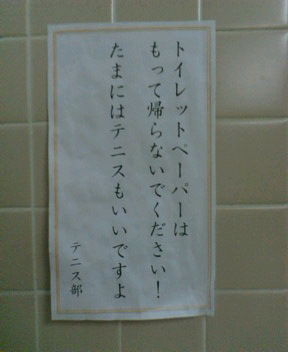 トイレットペーパーは
もって帰らないでください！
たまにはテニスもいいですよ
テニス部